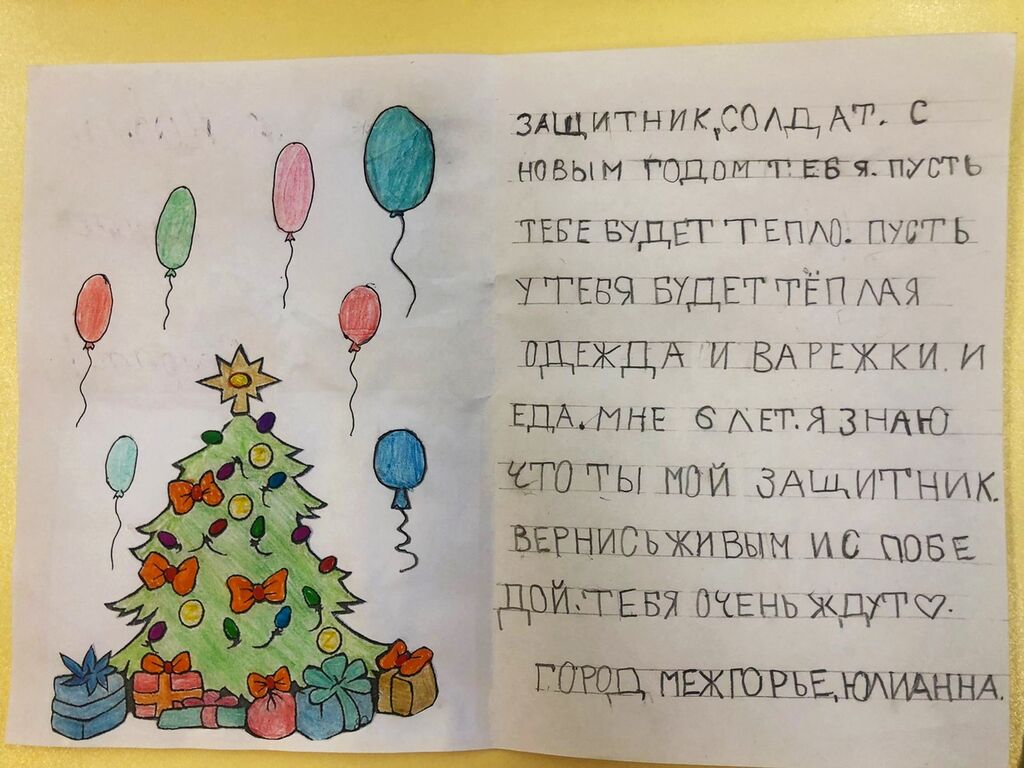 ЗАЩИТНИК,СОЛДАТ. С
НОВЫМ ГОДОМ ТЕБЯ. ПУСТЬ
ТЕБЕ БУДЕТ ТЕПЛО. ПУСТЬ
У ТЕБЯ БУДЕТ ТЁПЛАЯ
ОДЕЖДА И ВАРЕЖКИ. И
ЕДА. МНЕ 6 ЛЕТ. Я ЗНАЮ
ЧТО ТЫ МОЙ ЗАЩИТНИК.
ВЕРНИСЬ ЖИВЫМ И С ПОБЕ
ДОЙ. ТЕБЯ ОЧЕНЬ ЖДУТ♡.
ГОРОД МЕЖГОРЬЕ, ЮЛИАННА.